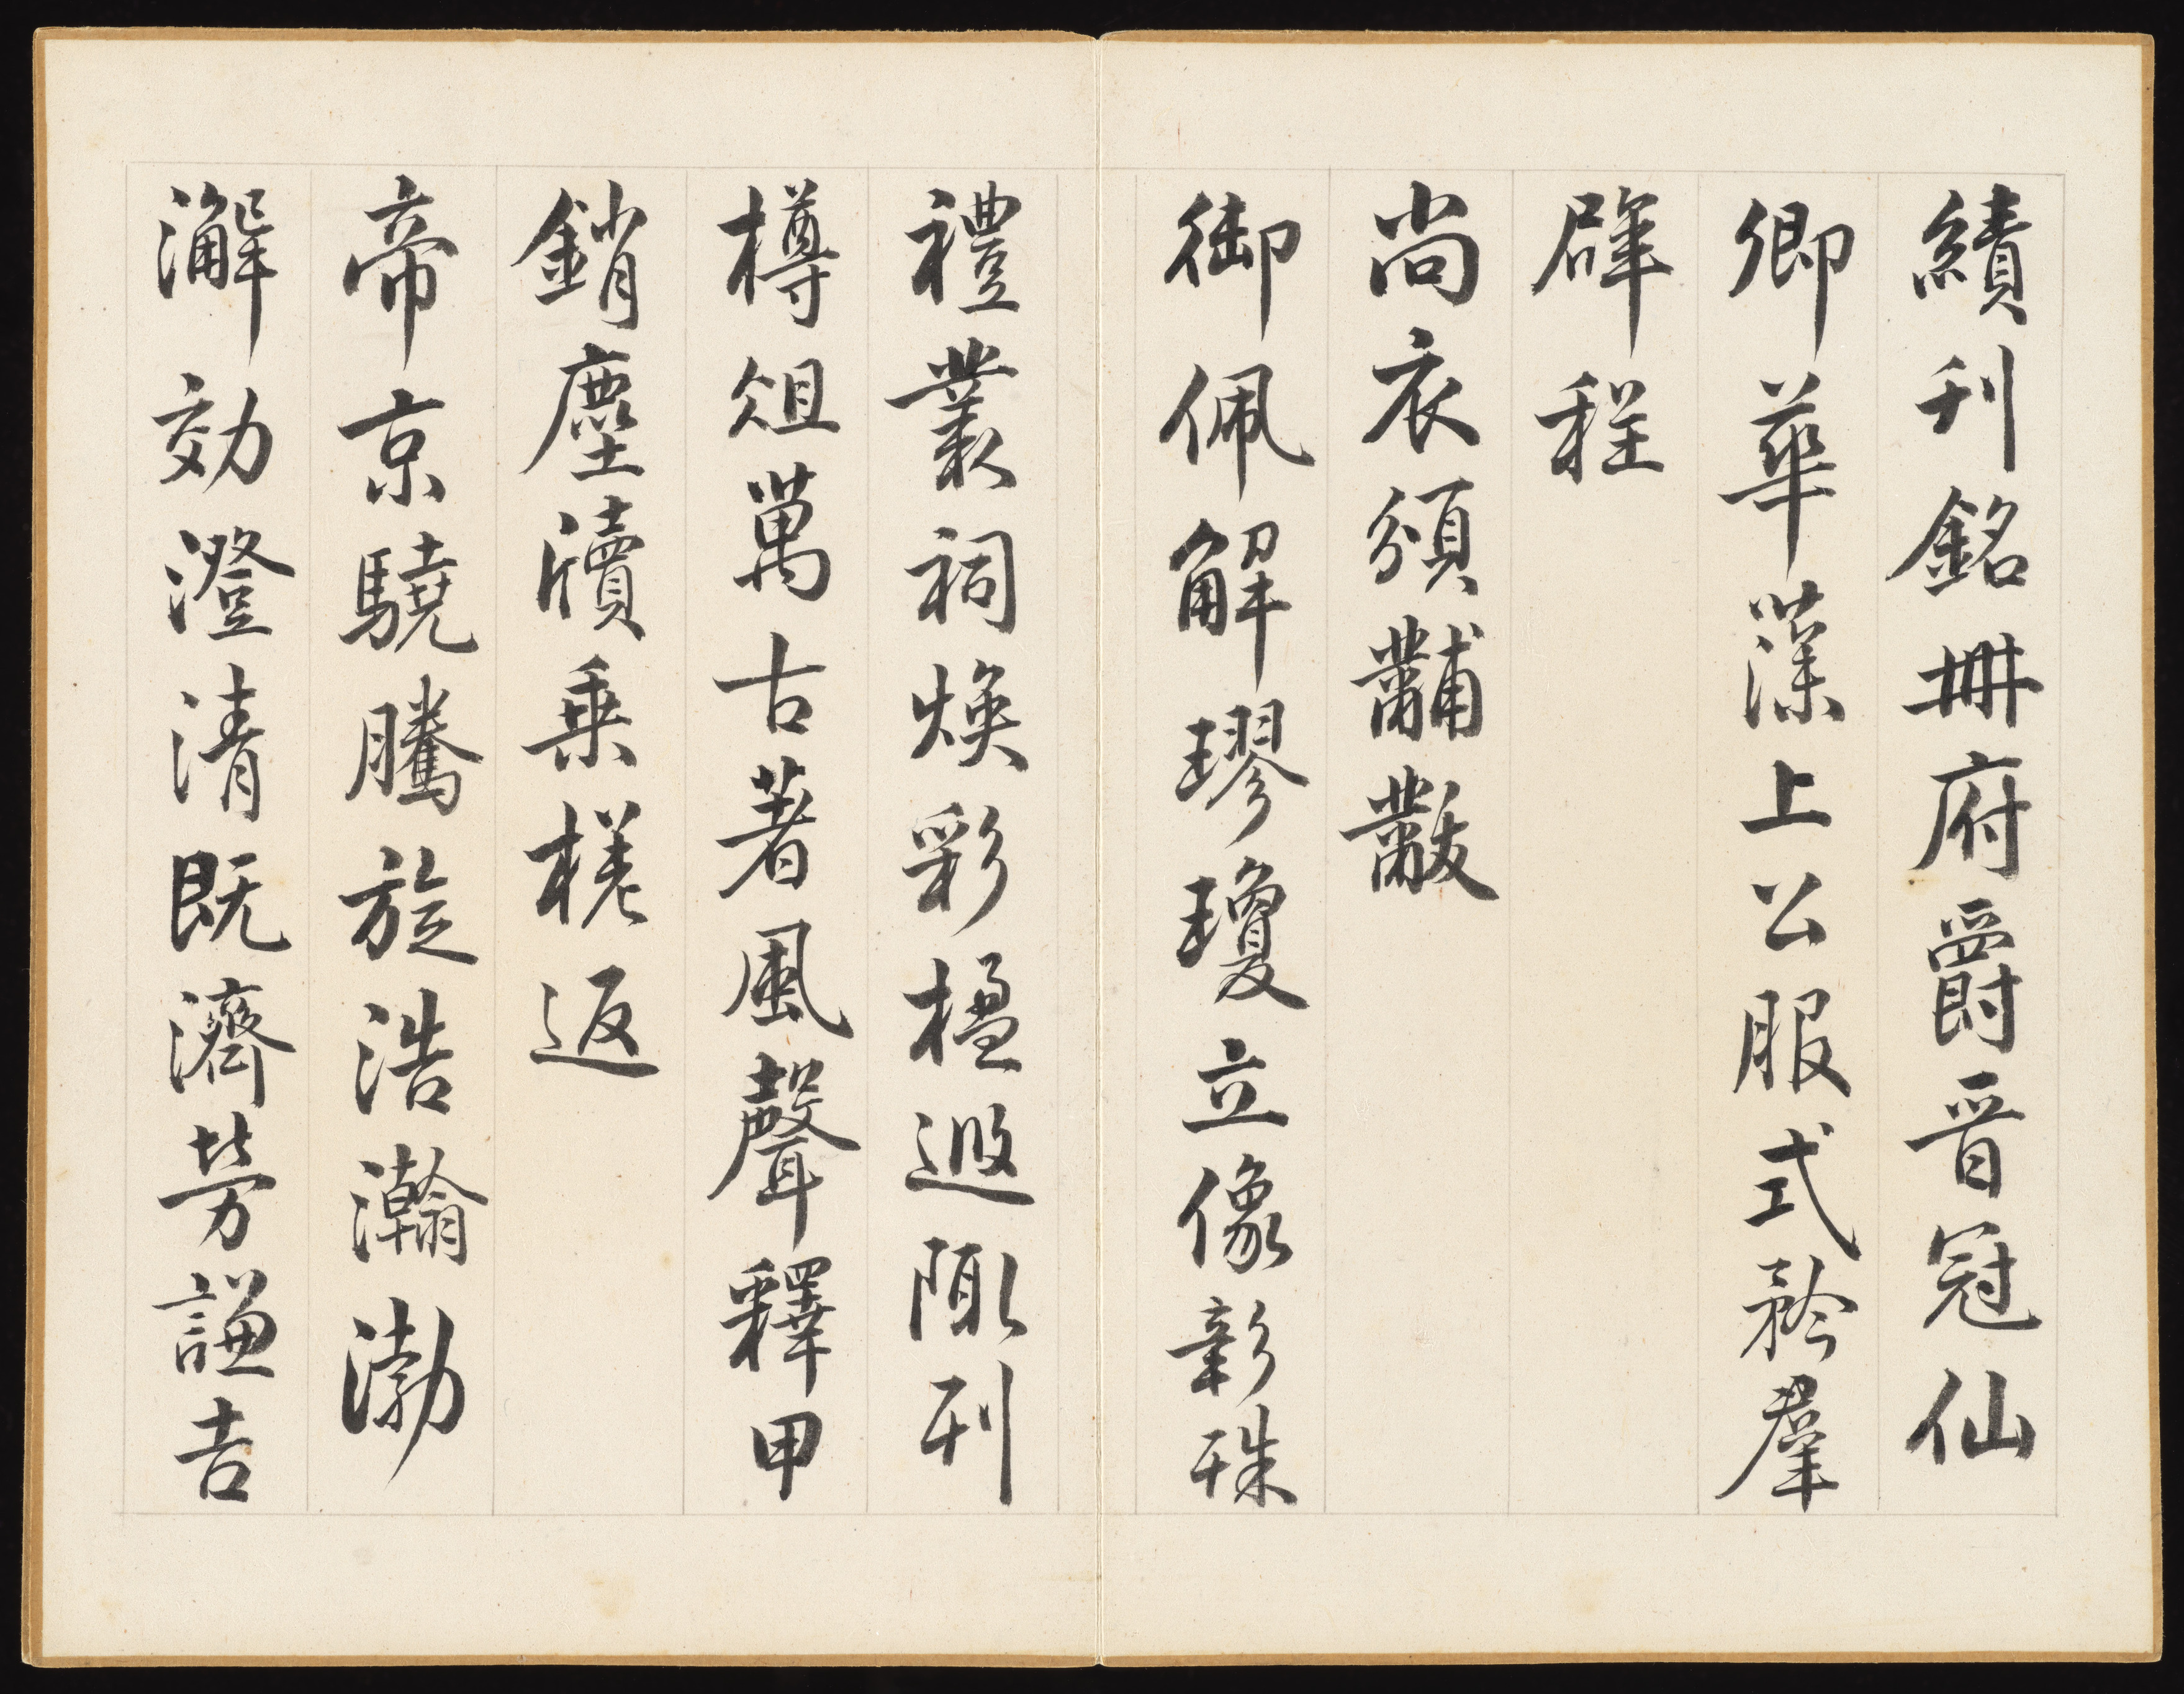 績刊銘冊府爵晉冠仙
卿華藻上公服式矜羣
辟程
尚衣頒黼黻
御佩解璆瓊立像彰殊
禮叢祠煥彩楹遐陬刊
樽俎萬古著風聲釋甲
銷塵牘乗槎返
帝京驍騰旋浩瀚渤
澥効澄清既濟勞謙吉